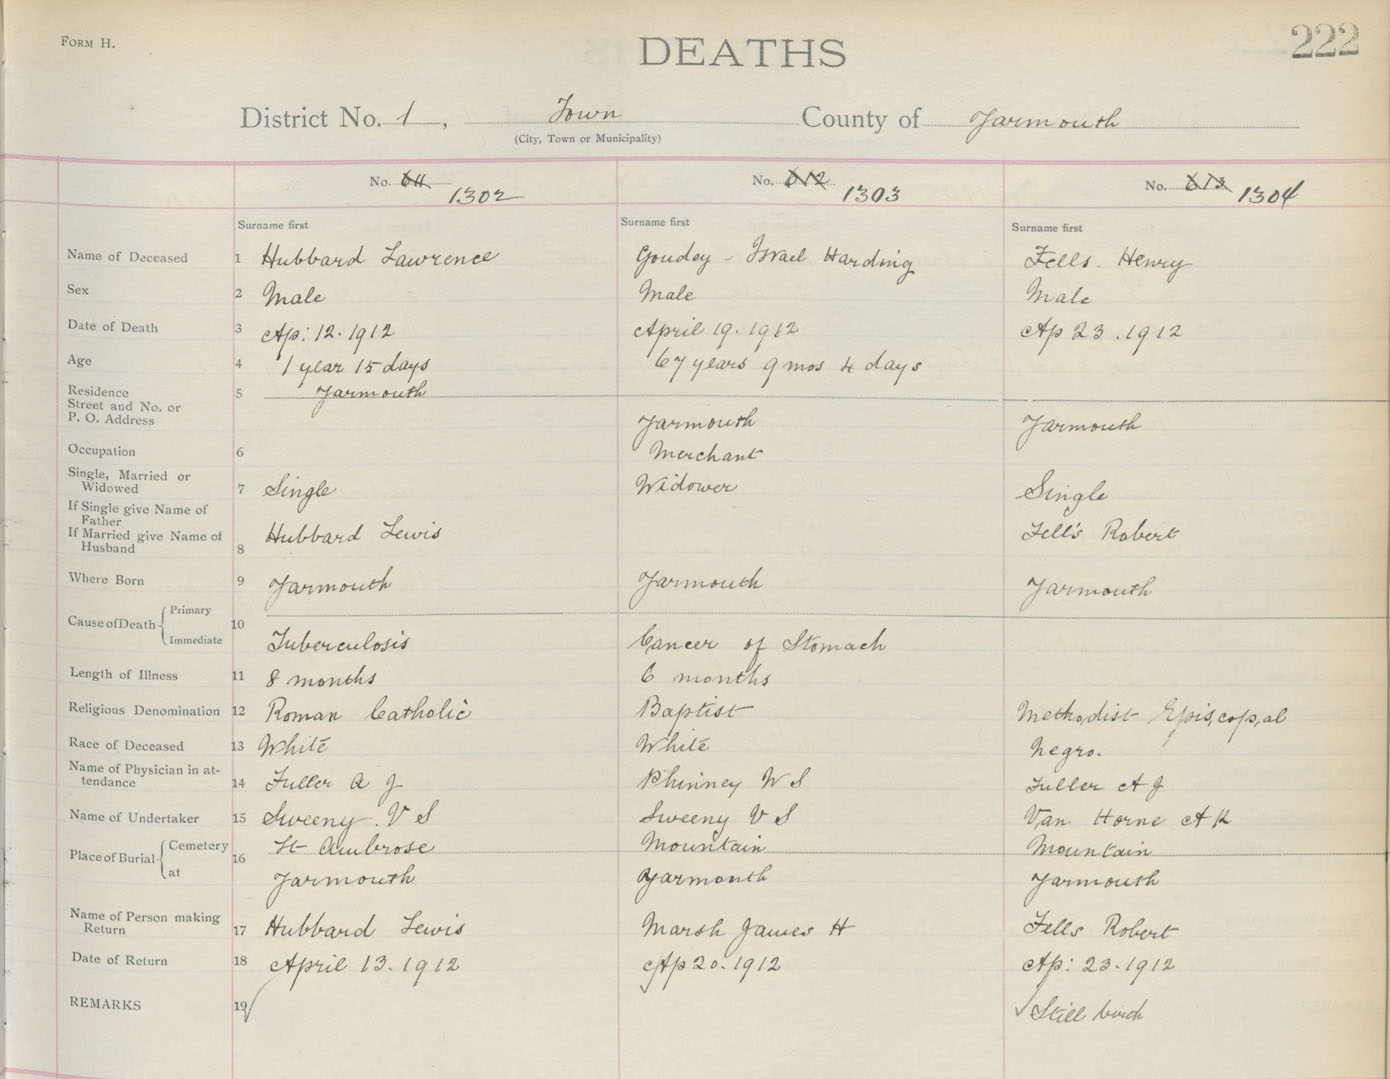 FORM H.
DEATHS
222
District No. 1, Town County of Yarmouth
(City, Town or Municipality)
No. 611 1302 No. 612 1303 No. 613 1304
Surname first Surname first Surname first
Name of Deceased 1 Hubbard Lawrence Goudey - Israel Harding Fells. Henry
Sex 2 Male Male Male
Date of Death 3 Ap: 12. 1912 April 19. 1912 Ap 23. 1912
Age 4 1 year 15 days 67 years 9 mos 4 days
Residence 5 Yarmouth
Street and No. or
P. O. Address Yarmouth Yarmouth
Occupation 6 Merchant
Single, Married or
Widowed 7 Single Widower Single
If Single give Name of
Father
If Married give Name of Hubbard Lewis Fell's Robert
Husband 8
Where Born 9 Yarmouth Yarmouth Yarmouth
Primary
Cause of Death 10
Immediate Tuberculosis Cancer of Stomach
Length of Illness 11 8 months 6 months
Religious Denomination 12 Roman Catholic Baptist Methodist Episcopal
Race of Deceased 13 White White Negro.
Name of Physician in at-
tendance 14 Fuller A J Phinney W S Fuller A J
Name of Undertaker 15 Sweeny. V S Sweeny V S Van Horne A K
Cemetery St Ambrose Mountain Mountain
Place of Burial 16
at Yarmouth Yarmouth Yarmouth
Name of Person making
Return 17 Hubbard Lewis Marsh James H Fells Robert
Date of Return 18 April 13. 1912 Ap 20. 1912 Ap: 23. 1912
REMARKS 19 Still birth